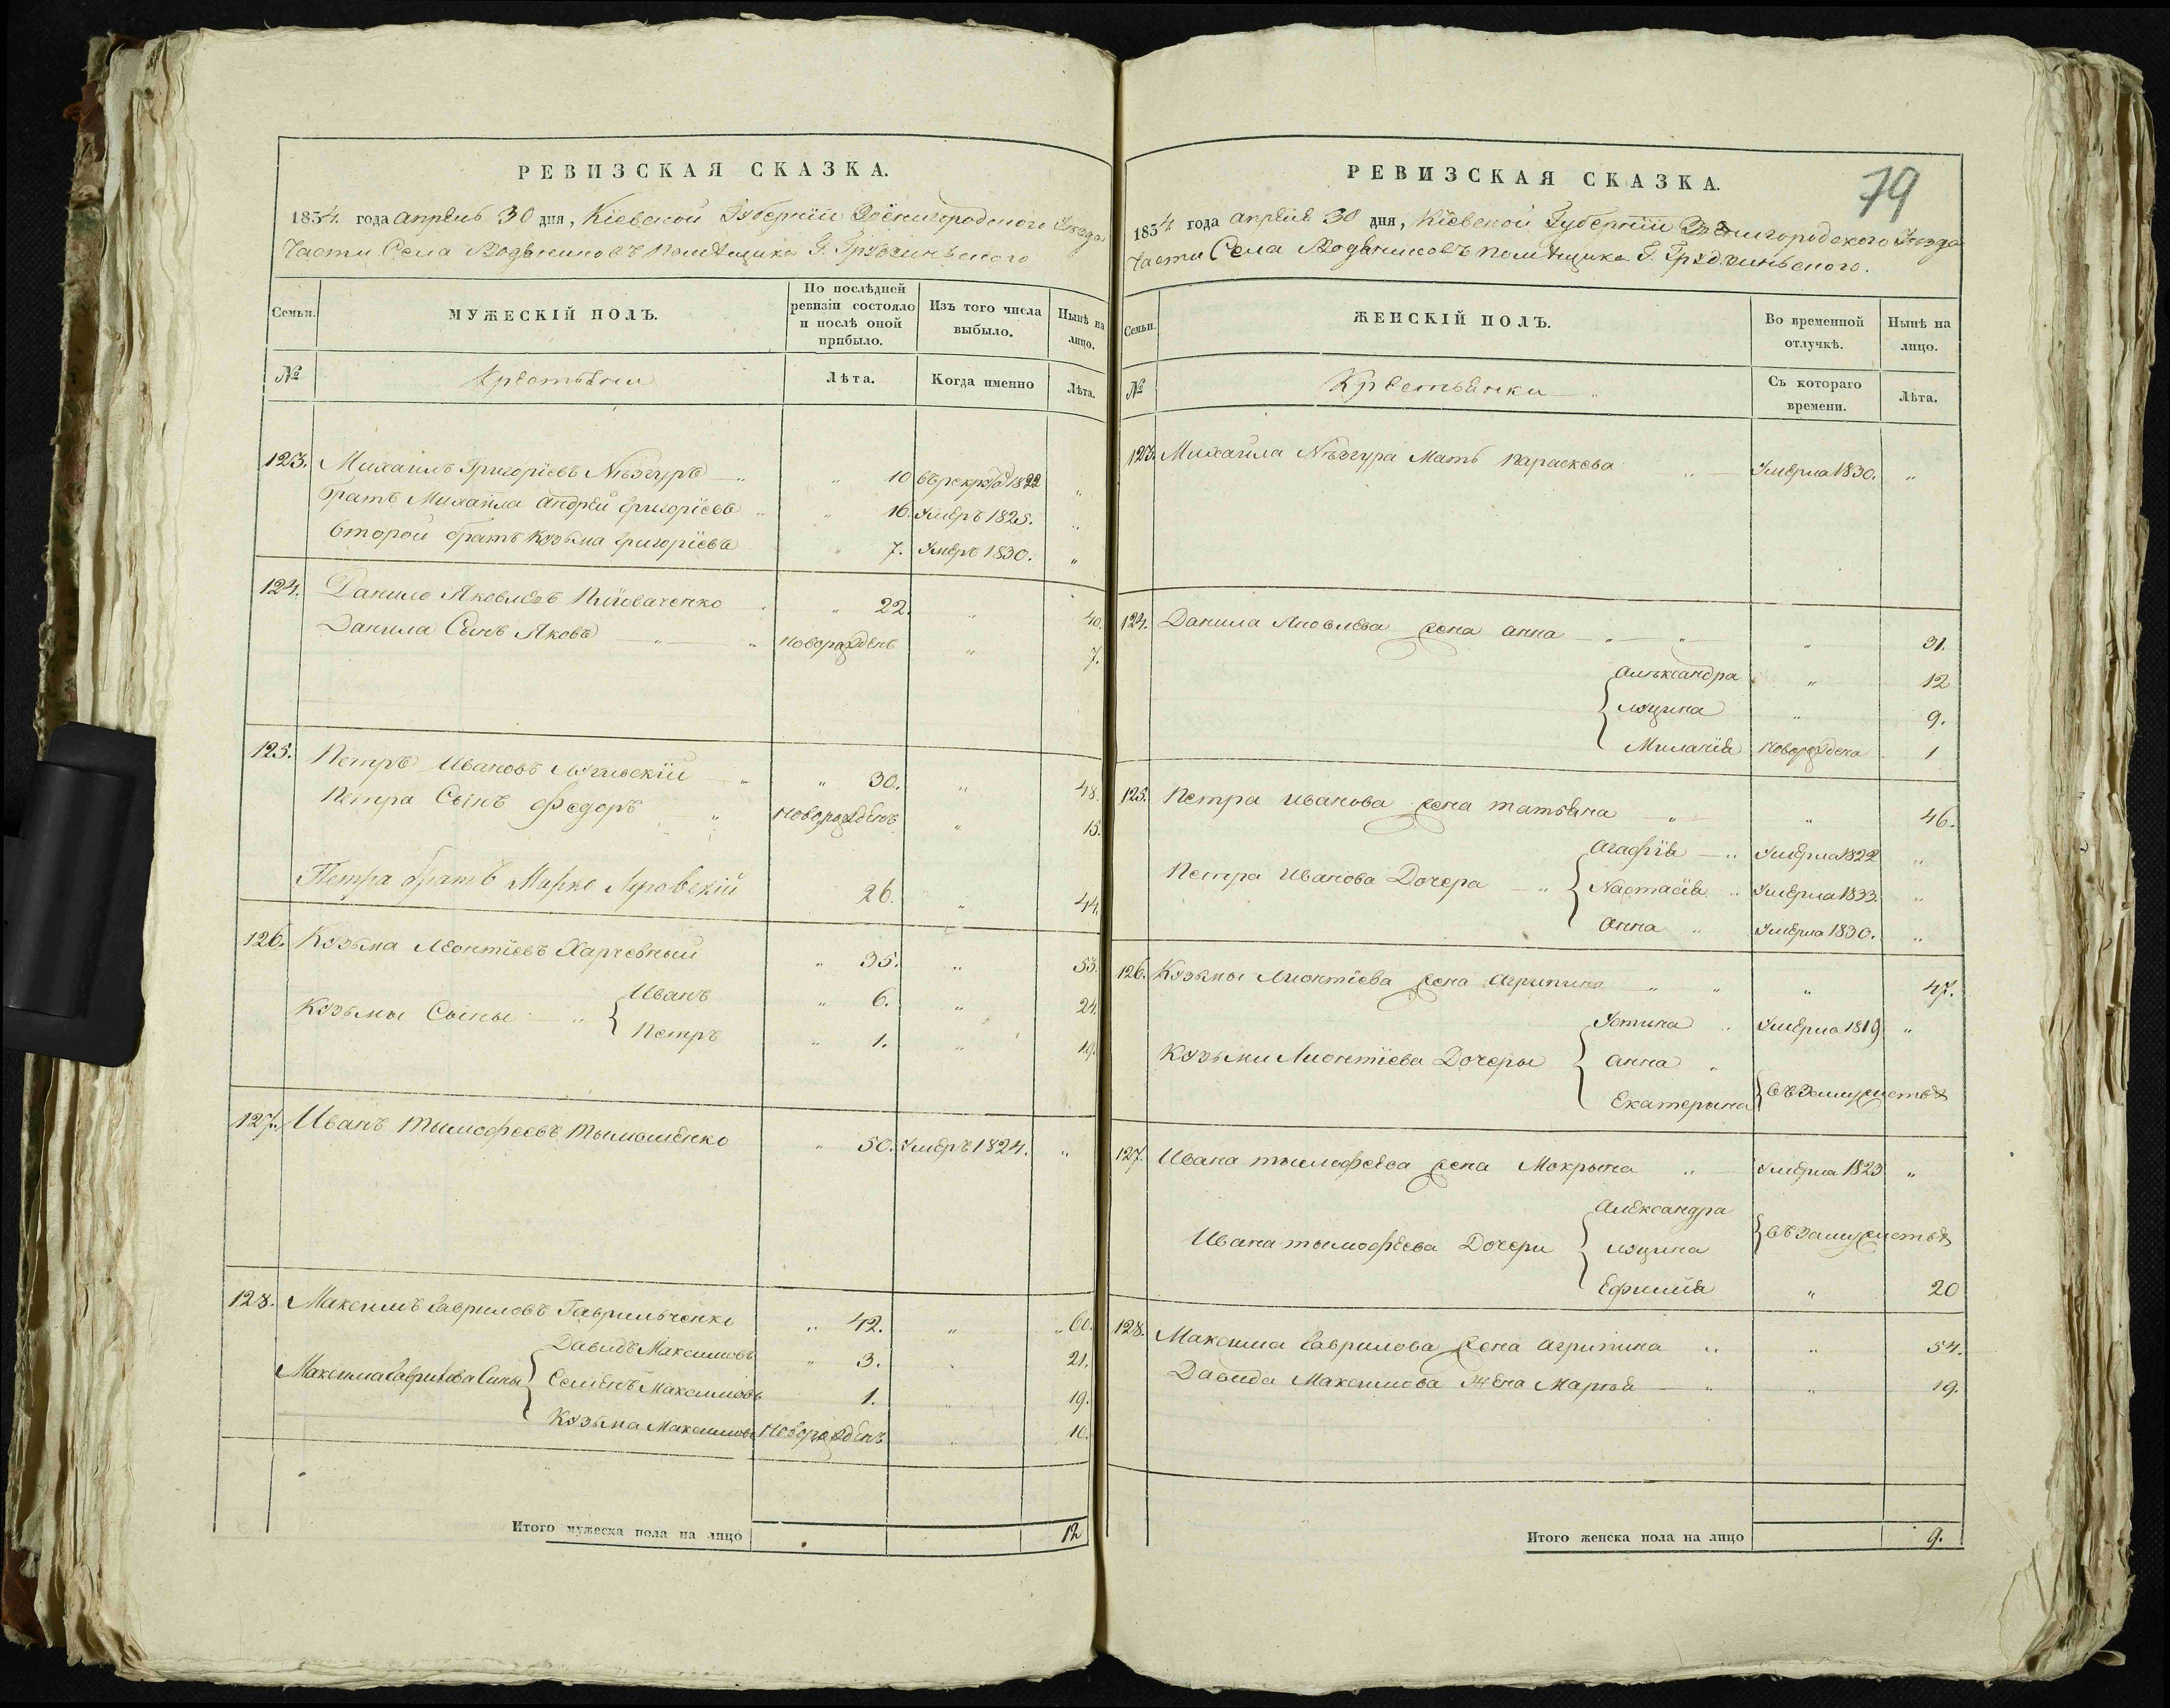 РЕВИЗСКАЯ СКАЗКА.
1834 года апреля 30 дня, Кіевской Губерніи Звенигородского Уезда
Части Села Водяниковъ помѣщика Г. Грудзинского
Семьи.
МУЖЕСКІЙ ПОЛЪ.
По послѣдней ревизіи состояло и послѣ оной прибыло.
Изъ того числа выбыло.
Нынѣ на лицо.
№
Крестьяни
Лѣта.
Когда именно
Лѣта.
123. Михаилъ Григоріевъ „ 10 въ рекруты 1822 „
братъ Михаила андрей григоріевъ „ 16. Умеръ 1825. „
второй братъ Кузьма григоріевъ „ 7. Умеръ 1830. „
124. Данило Яковлевъ Пивоваченко „ 22. „ 40.
Данила Сынъ Яковъ „ новорожденъ „ 7.
125. Петръ Ивановъ „ 30. „ 48.
Петра Сынъ Федоръ „ новорожденъ „ 15.
Петра братъ Марко 26. „ 44.
126. Кузьма Леонтіевъ Харчевный „ 35. „ 53.
Кузьмы Сыны { Иванъ „ 6. „ 24.
Петръ „ 1. „ 19.
127. Иванъ тымофеевъ тымошенко „ 50. Умеръ 1824. „
128. Максимъ Гавриловъ Гаврильченко „ 42. „ „ 60.
Давидъ Максимовъ „ 3. „ 21.
Максима Гаврилова Сины { Семенъ Максимовъ 1. „ 19.
Кузьма Максимовъ новорожденъ „ 10.
Итого мужеска пола на лицо 12
79
РЕВИЗСКАЯ СКАЗКА.
1834 года апреля 30 дня, Кіевской Губерніи Звенигородского Уезда
Части Села Водяниковъ помѣщика Г. Грудзинского.
Семьи.
ЖЕНСКІЙ ПОЛЪ.
Во временной отлучкѣ.
Нынѣ на лицо.
№
Крестьянки
Съ котораго времени.
Лѣта.
123. Михайла Мать параскева „ Умерла 1830. „
124. Данила Яковлева жена анна „ „ „ 31.
Александра „ 12
луцина „ 9.
Миланія новорождена 1
125. Петра иванова жена татьяна „ „ 46.
Агафія „ Умерла 1822 „
Петра иванова Дочера „ { Настасія „ Умерла 1833. „
анна „ Умерла 1830. „
126. Кузьмы Лионтіева жена агрипина „ „ „ 47.
Устина „ Умерла 1819 „
Кузьми Лионтіева Дочеры { анна „
Екатерына } въ Замужствѣ
127. Ивана тымофеева жена Мокрына „ Умерла 1823 „
Александра
Ивана тымофеева Дочери { луцина } въ Замужствѣ
Ефимія „ 20
128. Максима Гаврилова жена агрипина „ „ 54.
Давида Максимова жена Марья „ „ 19.
Итого женска пола на лицо 9.